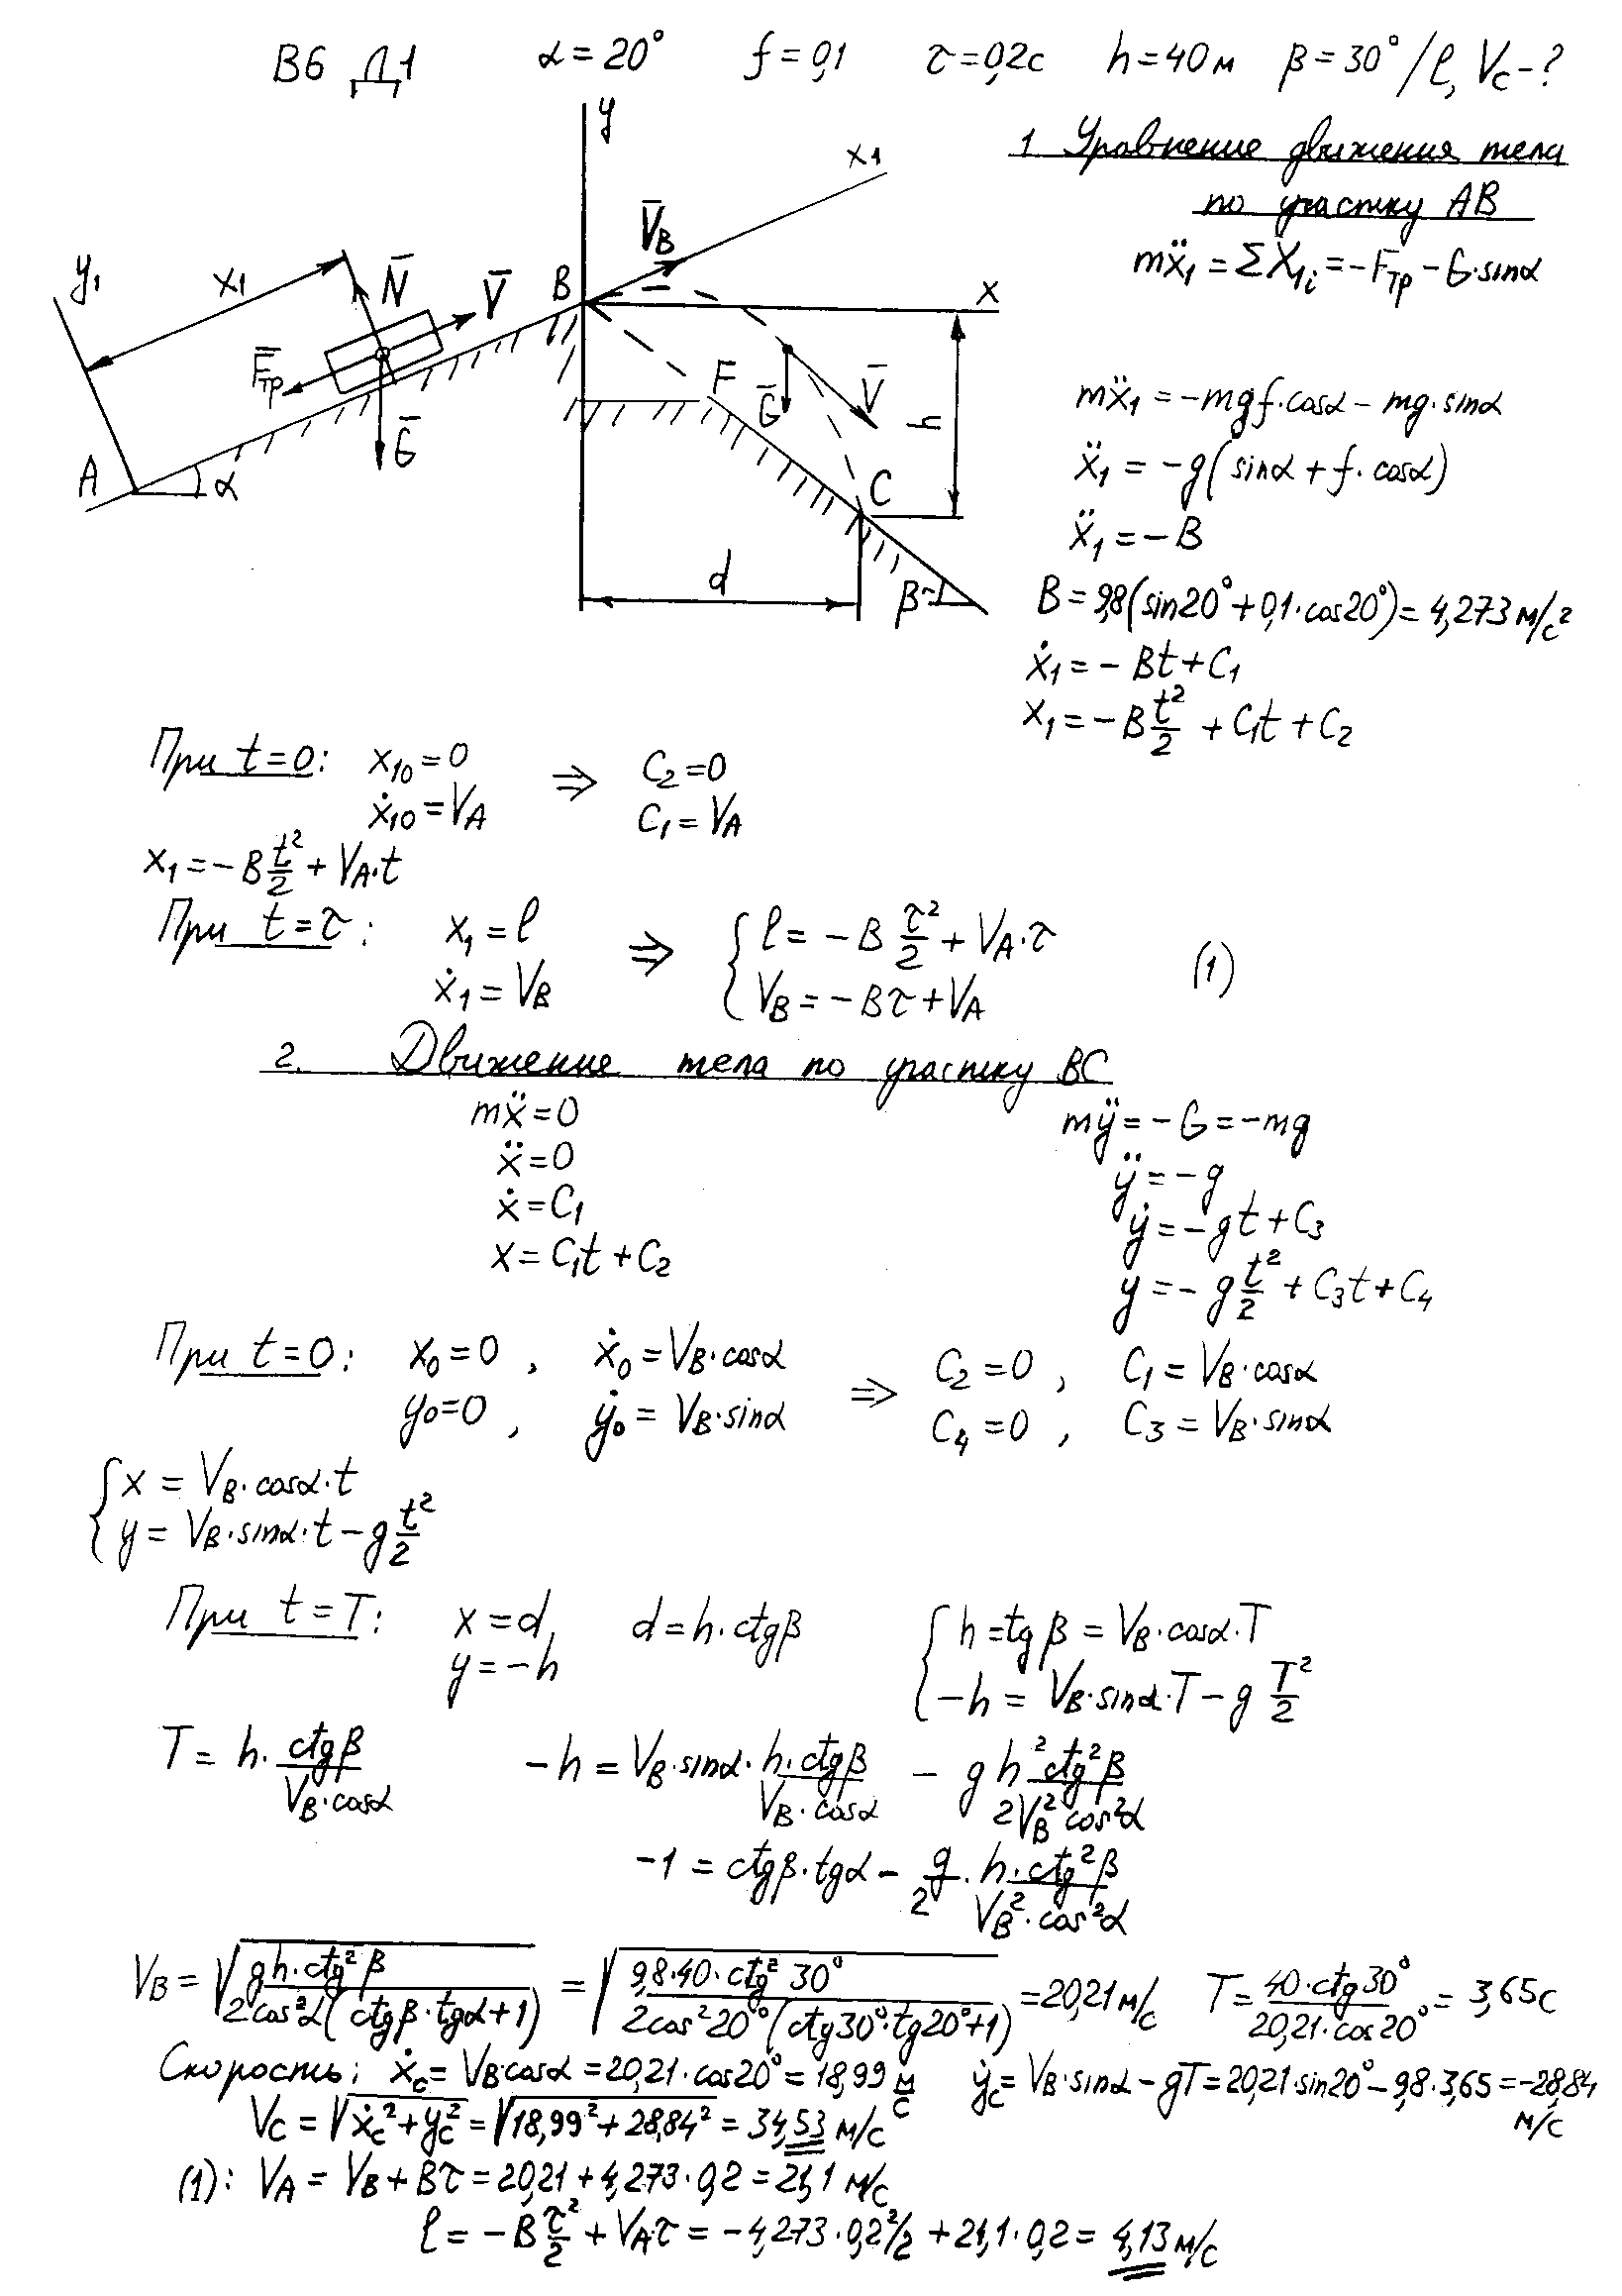 В6 Д1 α=20° f=0,1 τ=0,2с h=40м β=30° / l, Vc-?
1 Уравнение движения тела
по участку АВ
mẍ₁ = ΣX₁ᵢ = -Fтр - G·sinα
y
x₁
V̄в
y₁
x₁
N̄
V̄
B
x
F̄тр
F
Ḡ
V̄
h
Ḡ
A
α
C
d
β
mẍ₁ = -mgf·cosα - mg·sinα
ẍ₁ = -g(sinα + f·cosα)
ẍ₁ = -B
B = 9,8(sin20° + 0,1·cos20°) = 4,273 м/с²
ẋ₁ = -Bt + C₁
x₁ = -B t²/2 + C₁t + C₂
При t=0: x₁₀=0 ⇒ C₂=0
ẋ₁₀=VA C₁=VA
x₁ = -B t²/2 + VA·t
При t=τ: x₁=l ⇒ { l = -B τ²/2 + VA·τ (1)
ẋ₁=VB VB = -Bτ + VA
2. Движение тела по участку ВС
mẍ=0 mÿ=-G=-mg
ẍ=0 ÿ=-g
ẋ=C₁ ẏ=-gt+C₃
x=C₁t+C₂ y=-g t²/2 + C₃t + C₄
При t=0: x₀=0, ẋ₀=VB·cosα ⇒ C₂=0, C₁=VB·cosα
y₀=0, ẏ₀=VB·sinα C₄=0, C₃=VB·sinα
{ x = VB·cosα·t
y = VB·sinα·t - g t²/2
При t=T: x=d, d=h·ctgβ { h=tgβ = VB·cosα·T
y=-h -h = VB·sinα·T - g T²/2
T = h·ctgβ/(VB·cosα) -h = VB·sinα·h·ctgβ/(VB·cosα) - g h² ctg²β/(2VB² cos²α)
-1 = ctgβ·tgα - g/2 · h·ctg²β/(VB²·cos²α)
VB = √(gh·ctg²β/(2cos²α(ctgβ·tgα+1))) = √(9,8·40·ctg²30°/(2cos²20°(ctg30°·tg20°+1))) = 20,21 м/с T = 40·ctg30°/(20,21·cos20°) = 3,65с
Скорость: ẋc = VB·cosα = 20,21·cos20° = 18,99 м/с ẏc = VB·sinα - gT = 20,21·sin20° - 9,8·3,65 = -28,84 м/с
Vc = √(ẋc² + ẏc²) = √(18,99² + 28,84²) = 34,53 м/с
(1): VA = VB + Bτ = 20,21 + 4,273·0,2 = 21,1 м/с
l = -B τ²/2 + VAτ = -4,273·0,2²/2 + 21,1·0,2 = 4,13 м/с